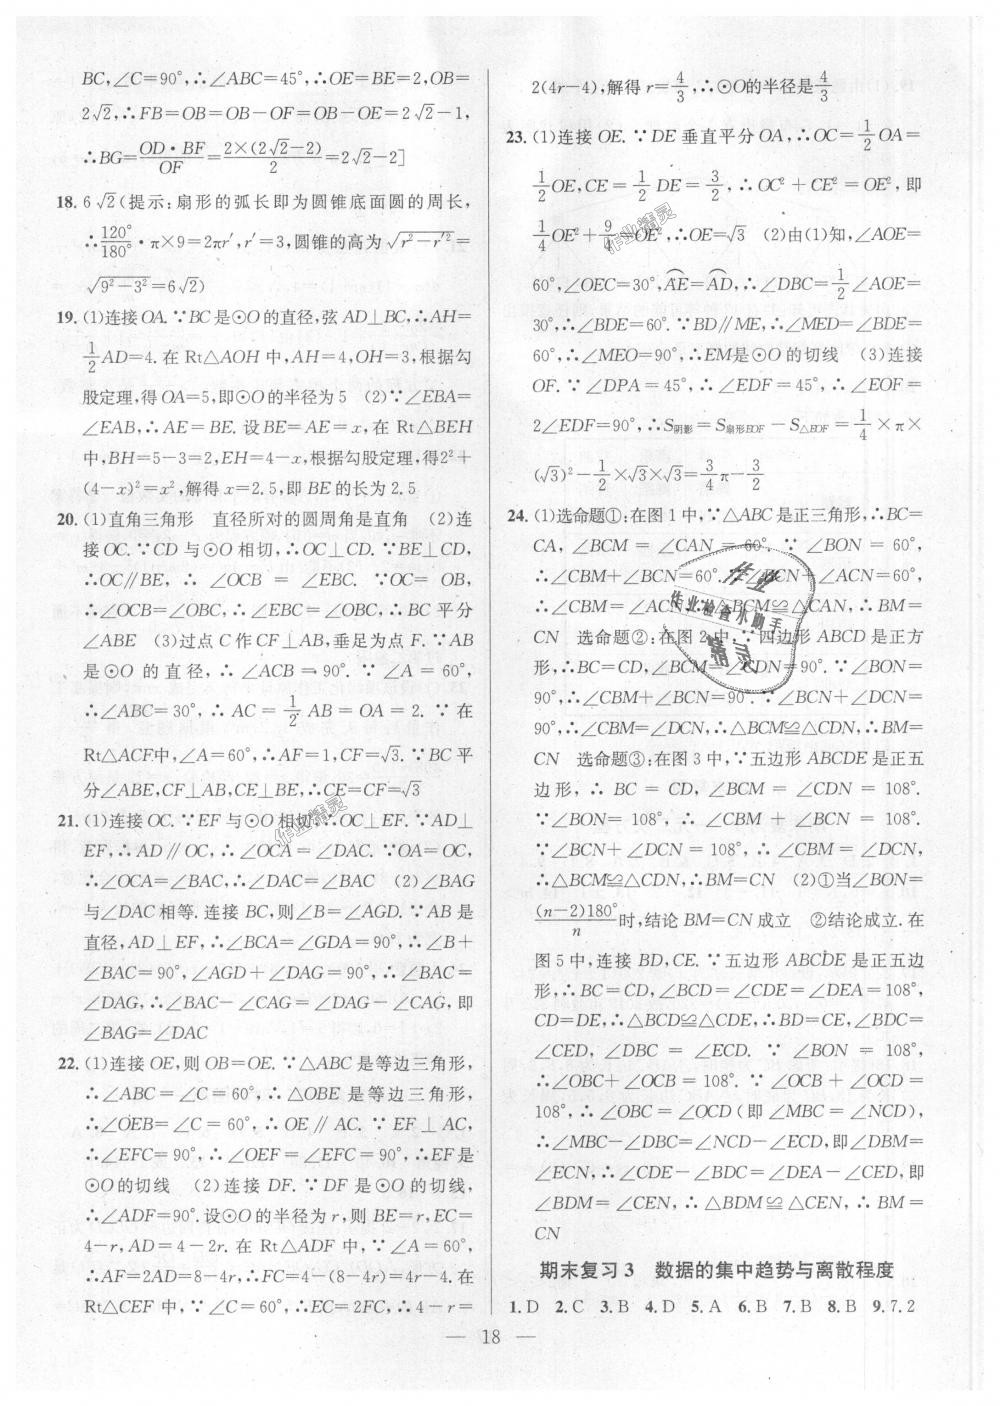 BC,∠C=90°,∴∠ABC=45°,∴OE=BE=2,OB=
2√2,∴FB=OB=OB-OF=OB-OE=2√2-1,
∴BG=OD·BF/OF=2×(2√2-2)/2=2√2-2]
18. 6√2(提示:扇形的弧长即为圆锥底面圆的周长,
∴120°/180°·π×9=2πr′,r′=3,圆锥的高为√(r²-r′²)=
√(9²-3²)=6√2)
19. (1)连接OA.∵BC是⊙O的直径,弦AD⊥BC,∴AH=
1/2AD=4.在Rt△AOH中,AH=4,OH=3,根据勾
股定理,得OA=5,即⊙O的半径为5 (2)∵∠EBA=
∠EAB,∴AE=BE.设BE=AE=x,在Rt△BEH
中,BH=5-3=2,EH=4-x,根据勾股定理,得2²+
(4-x)²=x²,解得x=2.5,即BE的长为2.5
20. (1)直角三角形 直径所对的圆周角是直角 (2)连
接OC.∵CD与⊙O相切,∴OC⊥CD.∵BE⊥CD,
∴OC∥BE,∴∠OCB=∠EBC.∵OC=OB,
∴∠OCB=∠OBC,∴∠EBC=∠OBC,∴BC平分
∠ABE (3)过点C作CF⊥AB,垂足为点F.∵AB
是⊙O的直径,∴∠ACB=90°.∵∠A=60°,
∴∠ABC=30°,∴AC=1/2AB=OA=2.∵在
Rt△ACF中,∠A=60°,∴AF=1,CF=√3.∵BC平
分∠ABE,CF⊥AB,CE⊥BE,∴CE=CF=√3
21. (1)连接OC.∵EF与⊙O相切,∴OC⊥EF.∵AD⊥
EF,∴AD∥OC,∴∠OCA=∠DAC.∵OA=OC,
∴∠OCA=∠BAC,∴∠DAC=∠BAC (2)∠BAG
与∠DAC相等.连接BC,则∠B=∠AGD.∵AB是
直径,AD⊥EF,∴∠BCA=∠GDA=90°,∴∠B+
∠BAC=90°,∠AGD+∠DAG=90°,∴∠BAC=
∠DAG,∴∠BAC-∠CAG=∠DAG-∠CAG,即
∠BAG=∠DAC
22. (1)连接OE,则OB=OE.∵△ABC是等边三角形,
∴∠ABC=∠C=60°,∴△OBE是等边三角形,
∴∠OEB=∠C=60°,∴OE∥AC.∵EF⊥AC,
∴∠EFC=90°,∴∠OEF=∠EFC=90°,∴EF是
⊙O的切线 (2)连接DF.∵DF是⊙O的切线,
∴∠ADF=90°.设⊙O的半径为r,则BE=r,EC=
4-r,AD=4-2r.在Rt△ADF中,∵∠A=60°,
∴AF=2AD=8-4r,∴FC=4-(8-4r)=4r-4.在
Rt△CEF中,∵∠C=60°,∴EC=2FC,∴4-r=
2(4r-4),解得r=4/3,∴⊙O的半径是4/3
23. (1)连接OE.∵DE垂直平分OA,∴OC=1/2OA=
1/2OE,CE=1/2DE=3/2,∴OC²+CE²=OE²,即
1/4OE²+9/4=OE²,∴OE=√3 (2)由(1)知,∠AOE=
60°,∠OEC=30°,AE=AD,∴∠DBC=1/2∠AOE=
30°,∴∠BDE=60°.∵BD∥ME,∴∠MED=∠BDE=
60°,∴∠MEO=90°,∴EM是⊙O的切线 (3)连接
OF.∵∠DPA=45°,∴∠EDF=45°,∴∠EOF=
2∠EDF=90°,∴S阴影=S扇形EOF-S△EOF=1/4×π×
(√3)²-1/2×√3×√3=3/4π-3/2
24. (1)选命题①:在图1中,∵△ABC是正三角形,∴BC=
CA,∠BCM=∠CAN=60°.∵∠BON=60°,
∴∠CBM+∠BCN=60°.∵∠BCN+∠ACN=60°,
∴∠CBM=∠ACN,∴△BCM≌△CAN,∴BM=
CN 选命题②:在图2中,∵四边形ABCD是正方
形,∴BC=CD,∠BCM=∠CDN=90°.∵∠BON=
90°,∴∠CBM+∠BCN=90°.∵∠BCN+∠DCN=
90°,∴∠CBM=∠DCN,∴△BCM≌△CDN,∴BM=
CN 选命题③:在图3中,∵五边形ABCDE是正五
边形,∴BC=CD,∠BCM=∠CDN=108°.
∵∠BON=108°,∴∠CBM+∠BCN=108°.
∵∠BCN+∠DCN=108°,∴∠CBM=∠DCN,
∴△BCM≌△CDN,∴BM=CN (2)①当∠BON=
(n-2)180°/n时,结论BM=CN成立 ②结论成立.在
图5中,连接BD,CE.∵五边形ABCDE是正五边
形,∴BC=CD,∠BCD=∠CDE=∠DEA=108°,
CD=DE,∴△BCD≌△CDE,∴BD=CE,∠BDC=
∠CED,∠DBC=∠ECD.∵∠BON=108°,
∴∠OBC+∠OCB=108°.∵∠OCB+∠OCD=
108°,∴∠OBC=∠OCD(即∠MBC=∠NCD),
∴∠MBC-∠DBC=∠NCD-∠ECD,即∠DBM=
∠ECN,∴∠CDE-∠BDC=∠DEA-∠CED,即
∠BDM=∠CEN,∴△BDM≌△CEN,∴BM=
CN
期末复习3 数据的集中趋势与离散程度
1. D 2. C 3. B 4. D 5. A 6. B 7. B 8. B 9. 7.2
— 18 —
作业
作业检查小助手
精灵
作业精灵
作业精灵